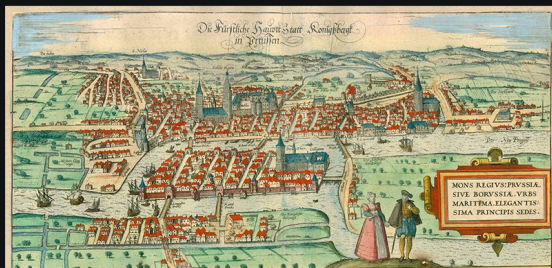 Die Fürstliche Hauptt Statt Königsbergk
in Preussen.
MONS REGIVS, PRVSSIÆ,
SIVE BORVSSIÆ, VRBS
MARITIMA, ELEGANTIS:
SIMA PRINCIPIS SEDES.